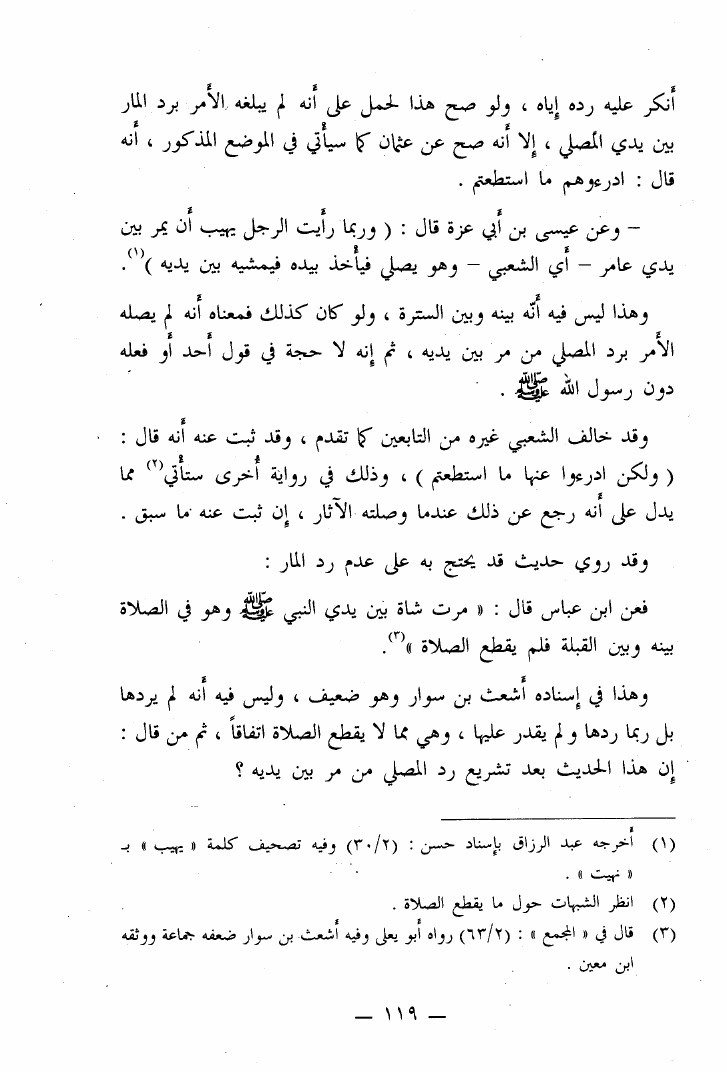 أنكر عليه رده إياه ، ولو صح هذا لحمل على أنه لم يبلغه الأمر برد المار
بين يدي المصلي ، إلا أنه صح عن عثمان كما سيأتي في الموضع المذكور ، أنه
قال : ادرءوهم ما استطعتم .
– وعن عيسى بن أبي عزة قال : ( وربما رأيت الرجل يهيب أن يمر بين
يدي عامر – أي الشعبي – وهو يصلي فيأخذ بيده فيمشيه بين يديه )(١).
وهذا ليس فيه أنّه بينه وبين السترة ، ولو كان كذلك فمعناه أنه لم يصله
الأمر برد المصلي من مر بين يديه ، ثم إنه لا حجة في قول أحد أو فعله
دون رسول الله ﷺ .
وقد خالف الشعبي غيره من التابعين كما تقدم ، وقد ثبت عنه أنه قال :
( ولكن ادرءوا عنها ما استطعتم ) ، وذلك في رواية أخرى ستأتي(٢) مما
يدل على أنه رجع عن ذلك عندما وصلته الآثار ، إن ثبت عنه ما سبق .
وقد روي حديث قد يحتج به على عدم رد المار :
فعن ابن عباس قال : « مرت شاة بين يدي النبي ﷺ وهو في الصلاة
بينه وبين القبلة فلم يقطع الصلاة »(٣).
وهذا في إسناده أشعث بن سوار وهو ضعيف ، وليس فيه أنه لم يردها
بل ربما ردها ولم يقدر عليها ، وهي مما لا يقطع الصلاة اتفاقاً ، ثم من قال :
إن هذا الحديث بعد تشريع رد المصلي من مر بين يديه ؟
(١) أخرجه عبد الرزاق بإسناد حسن : (٣٠/٢) وفيه تصحيف كلمة « يهيب » بـ
« نهيت » .
(٢) انظر الشبهات حول ما يقطع الصلاة .
(٣) قال في « المجمع » : (٦٣/٢) رواه أبو يعلى وفيه أشعث بن سوار ضعفه جماعة ووثقه
ابن معين .
– ١١٩ –